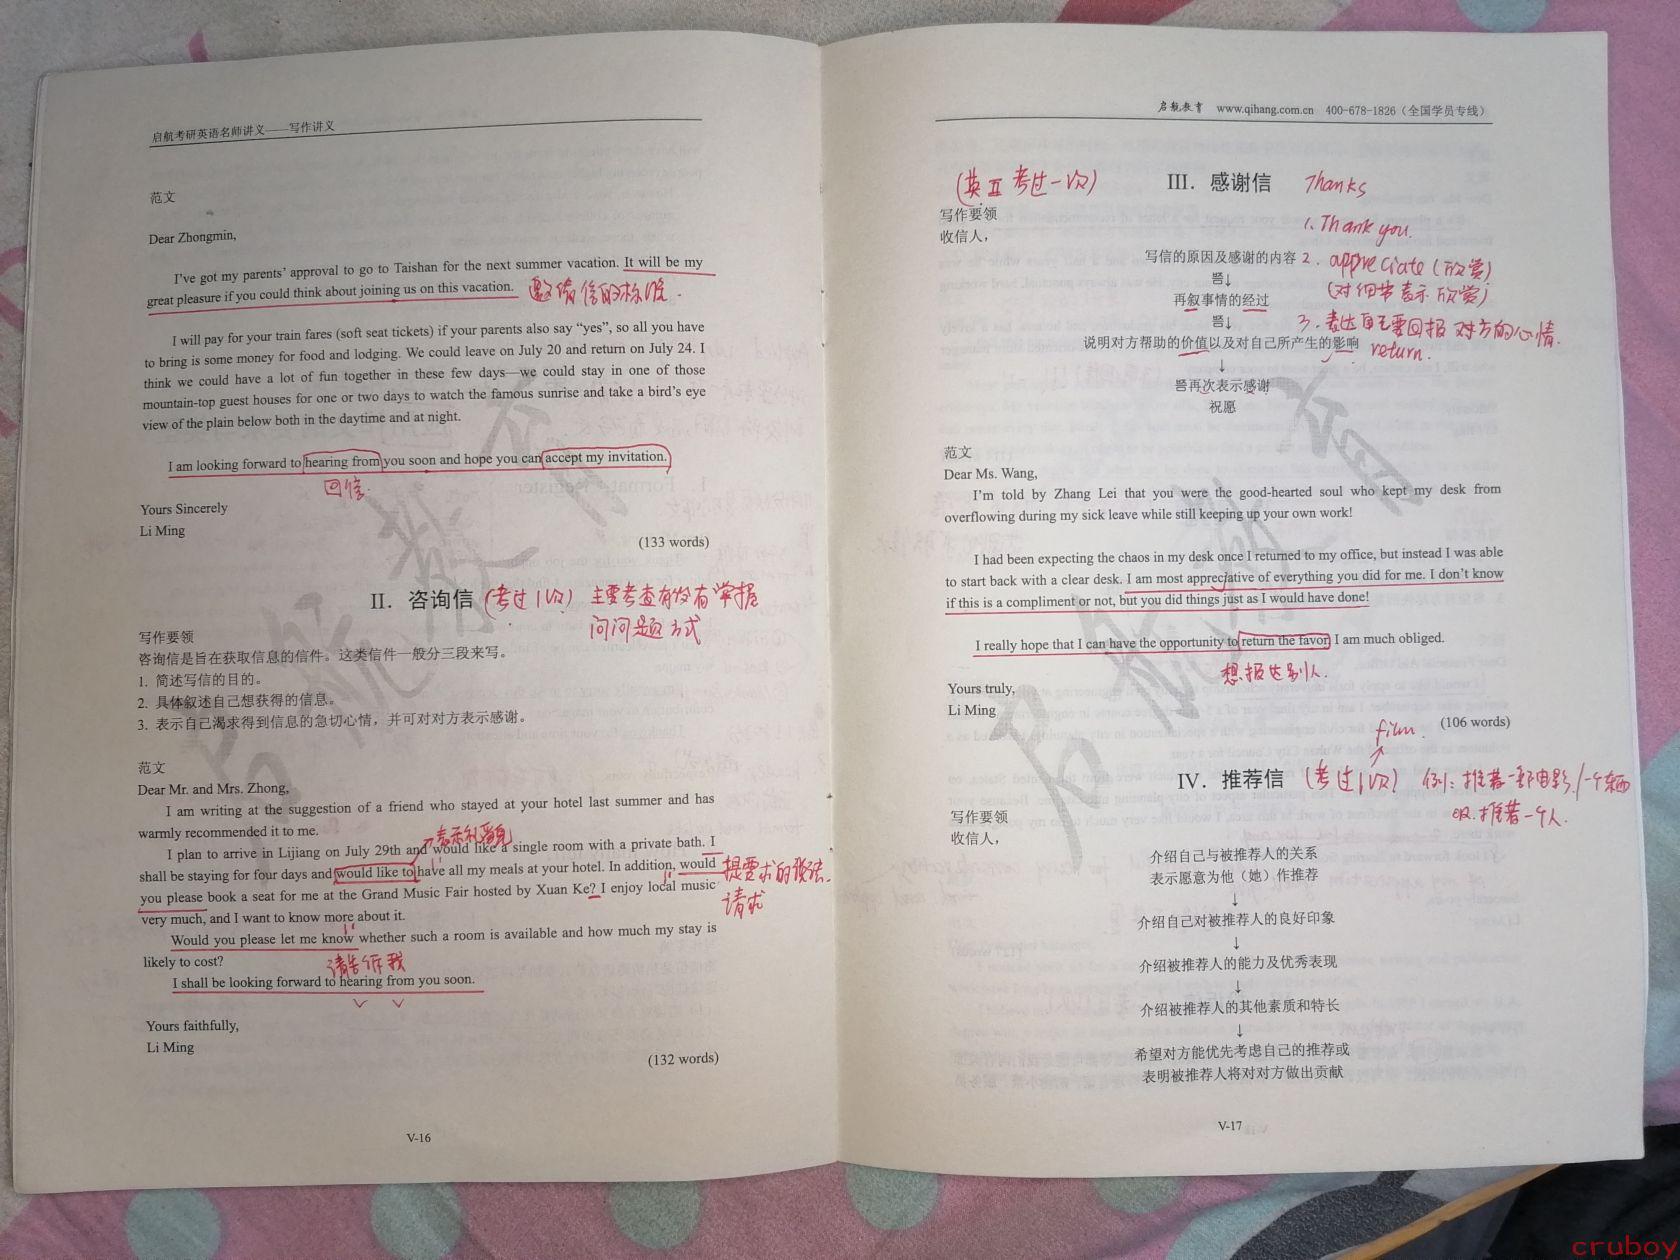 启航考研英语名师讲义——写作讲义
范文
Dear Zhongmin,
I've got my parents' approval to go to Taishan for the next summer vacation. It will be my
great pleasure if you could think about joining us on this vacation. 邀请信的标准.
I will pay for your train fares (soft seat tickets) if your parents also say “yes”, so all you have
to bring is some money for food and lodging. We could leave on July 20 and return on July 24. I
think we could have a lot of fun together in these few days—we could stay in one of those
mountain-top guest houses for one or two days to watch the famous sunrise and take a bird's eye
view of the plain below both in the daytime and at night.
I am looking forward to hearing from you soon and hope you can accept my invitation.
回信.
Yours Sincerely
Li Ming
(133 words)
II. 咨询信 (考过1次) 主要考查有没有掌握
问问题方式
写作要领
咨询信是旨在获取信息的信件。这类信件一般分三段来写。
1. 简述写信的目的。
2. 具体叙述自己想获得的信息。
3. 表示自己渴求得到信息的急切心情，并可对对方表示感谢。
范文
Dear Mr. and Mrs. Zhong,
I am writing at the suggestion of a friend who stayed at your hotel last summer and has
warmly recommended it to me.
表示礼貌
I plan to arrive in Lijiang on July 29th and would like a single room with a private bath. I
shall be staying for four days and would like to have all my meals at your hotel. In addition, would
提要求的
you please book a seat for me at the Grand Music Fair hosted by Xuan Ke? I enjoy local music
请求
very much, and I want to know more about it.
Would you please let me know whether such a room is available and how much my stay is
likely to cost?
请告诉我
I shall be looking forward to hearing from you soon.
Yours faithfully,
Li Ming
(132 words)
V-16
启航教育 www.qihang.com.cn 400-678-1826（全国学员专线）
(英II考过一次) III. 感谢信 Thanks
写作要领
收信人，
1. Thank you.
写信的原因及感谢的内容 2. appreciate (欣赏)
(对细节表示欣赏)
↓
再叙事情的经过
↓ 3. 表达自己要回报对方的心情.
说明对方帮助的价值以及对自己所产生的影响 return.
↓
再次表示感谢
祝愿
范文
Dear Ms. Wang,
I'm told by Zhang Lei that you were the good-hearted soul who kept my desk from
overflowing during my sick leave while still keeping up your own work!
I had been expecting the chaos in my desk once I returned to my office, but instead I was able
to start back with a clear desk. I am most appreciative of everything you did for me. I don't know
if this is a compliment or not, but you did things just as I would have done!
I really hope that I can have the opportunity to return the favor. I am much obliged.
想报达别人.
Yours truly,
Li Ming
(106 words)
film.
IV. 推荐信 (考过1次) 例：推荐一部电影/一个东西
推荐一个人.
写作要领
收信人，
介绍自己与被推荐人的关系
表示愿意为他（她）作推荐
↓
介绍自己对被推荐人的良好印象
↓
介绍被推荐人的能力及优秀表现
↓
介绍被推荐人的其他素质和特长
↓
希望对方能优先考虑自己的推荐或
表明被推荐人将对对方做出贡献
V-17
启航教育
启航教育
cruboy